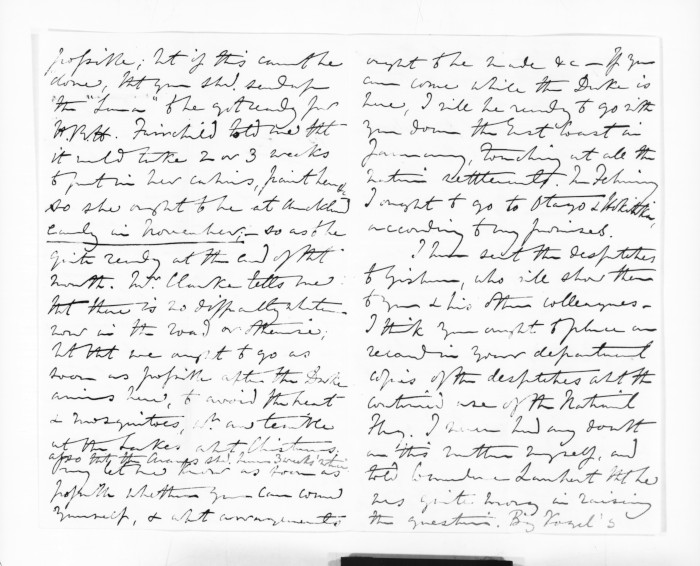 possible; but if this cannot be
done, that you shd. send up
the "Luna" to be got ready for
H.R.H. Fairchild told me that
it would take 2 or 3 weeks
to put in her cabins, paint her &c
so she ought to be at Auckland
early in November; - so as to be
quite ready at the end of that
month. Mr. Clarke tells me
that there is no difficulty whatever
now in the road or otherwise;
but that we ought to go as
soon as possible after the Duke
arrives here, to avoid the heat
& mosquitoes, wh. are terrible
at the Lakes abt Christmas,
also that the Arawas shd. have 3 weeks' notice
Pray let me know as soon as
possible whether you can come
yourself, & what arrangements
ought to be made &c - If you
can come while the Duke is
here, I will be ready to go with
you down the East Coast in
January, touching at all the
native settlements. In February
I ought to go to Otago & Hokitika,
according to my promises.
I have sent the despatches
to Gisborne, who will show them
to you & his other colleagues -
I think you ought to place on
record in your department
copies of the despatches abt the
continued use of the National
Flag. I never had any doubt
on this matter myself, and
told Commodore Lambert that he
was quite wrong in raising
the question. By Vogel's